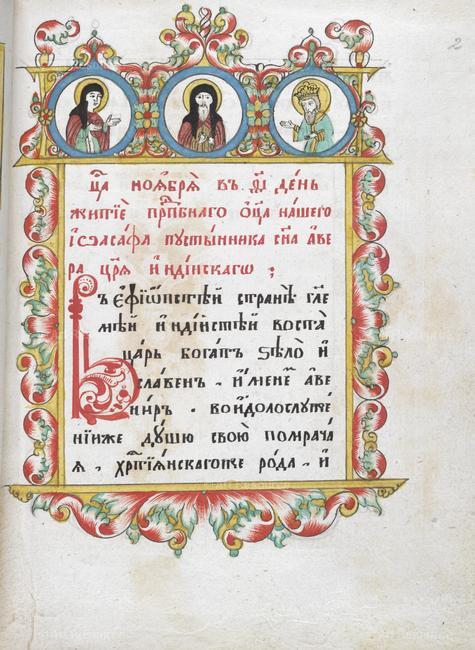 2
мц҃а ноѧ́брѧ въ ѳ҃і де́нь
житїѐ прпⷣбнаго ѻ҆ц҃а на́шего
і҆ѡаса́фа пꙋсты́нника сн҃а а҆ве
ра царѧ̀ и҆ндїйскагѡ ;
Въ є҆фїѡ́пстѣй странѣ̀ гл҃е
мѣй и҆ндїйстѣй воста̀
ца́рь бога́тъ ѕѣлѡ̀ и҆
сла́венъ . и҆́менемъ а҆ве
ни́ръ . во и҆долослꙋже
нїи же дꙋ́шю свою̀ помрача́
ѧ . хрⷭтїѧ́нскаго же ро́да . и҆